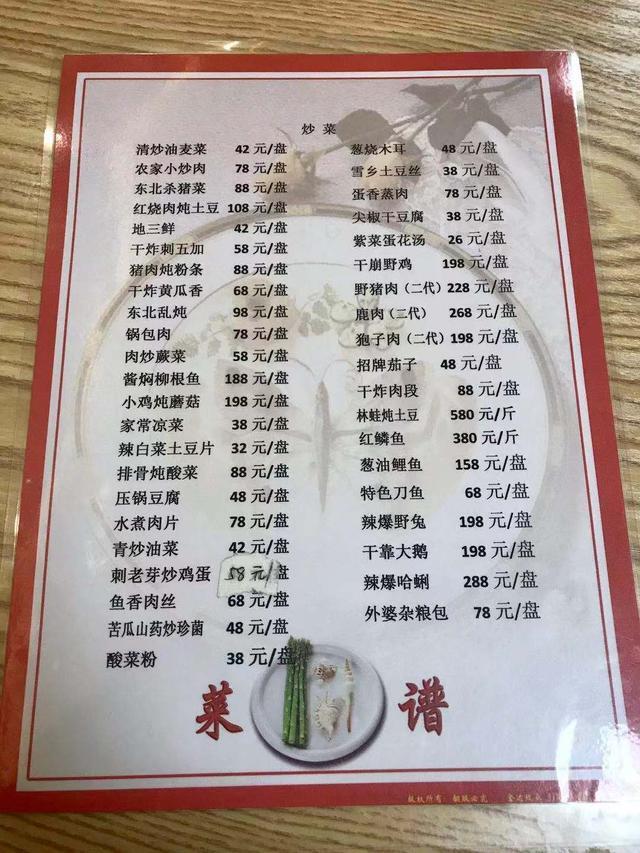 炒菜
清炒油麦菜 42 元/盘
农家小炒肉 78 元/盘
东北杀猪菜 88 元/盘
红烧肉炖土豆 108 元/盘
地三鲜 42 元/盘
干炸刺五加 58 元/盘
猪肉炖粉条 88 元/盘
干炸黄瓜香 68 元/盘
东北乱炖 98 元/盘
锅包肉 78 元/盘
肉炒蕨菜 58 元/盘
酱焖柳根鱼 188 元/盘
小鸡炖蘑菇 198 元/盘
家常凉菜 38 元/盘
辣白菜土豆片 32 元/盘
排骨炖酸菜 88 元/盘
压锅豆腐 48 元/盘
水煮肉片 78 元/盘
青炒油菜 42 元/盘
刺老芽炒鸡蛋 58 元/盘
鱼香肉丝 68 元/盘
苦瓜山药炒珍菌 48 元/盘
酸菜粉 38 元/盘
葱烧木耳 48 元/盘
雪乡土豆丝 38 元/盘
蛋香蒸肉 78 元/盘
尖椒干豆腐 38 元/盘
紫菜蛋花汤 26 元/盘
干崩野鸡 198 元/盘
野猪肉（二代）228 元/盘
鹿肉（二代） 268 元/盘
狍子肉（二代）198 元/盘
招牌茄子 48 元/盘
干炸肉段 88 元/盘
林蛙炖土豆 580 元/斤
红鳞鱼 380 元/斤
葱油鲤鱼 158 元/盘
特色刀鱼 68 元/盘
辣爆野兔 198 元/盘
干靠大鹅 198 元/盘
辣爆哈蜊 288 元/盘
外婆杂粮包 78 元/盘
菜谱
版权所有 翻版必究